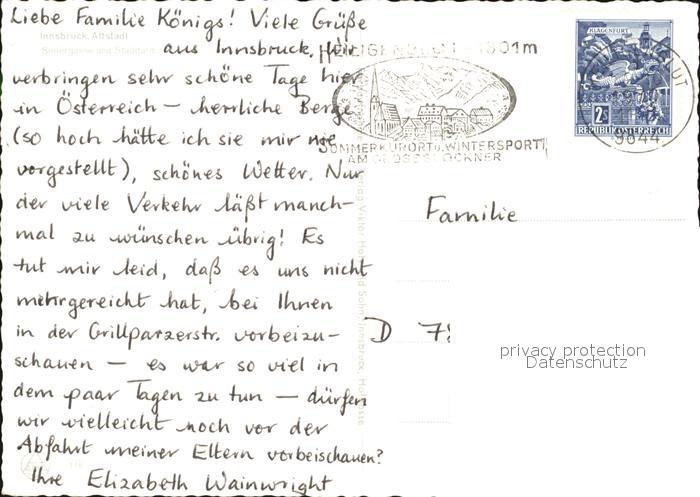 Liebe Familie Königs! Viele Grüße
Innsbruck, Altstadt
aus Innsbruck, wir
verbringen sehr schöne Tage hier
in Österreich – herrliche Berge
(so hoch hätte ich sie mir nie
vorgestellt), schönes Wetter. Nur
der viele Verkehr läßt manch-
mal zu wünschen übrig! Es
tut mir leid, daß es uns nicht
mehr gereicht hat, bei Ihnen
in der Grillparzerstr. vorbeizu-
schauen – es war so viel in
dem paar Tagen zu tun – dürfen
wir vielleicht noch vor der
Abfahrt meiner Eltern vorbeischauen?
Ihre Elizabeth Wainwright
HEILIGENBLUT - 1301m
SOMMERKURORT u. WINTERSPORT
AM GROSSGLOCKNER
KLAGENFURT
2S
REPUBLIK ÖSTERREICH
9844
Familie
D 7
privacy protection
Datenschutz